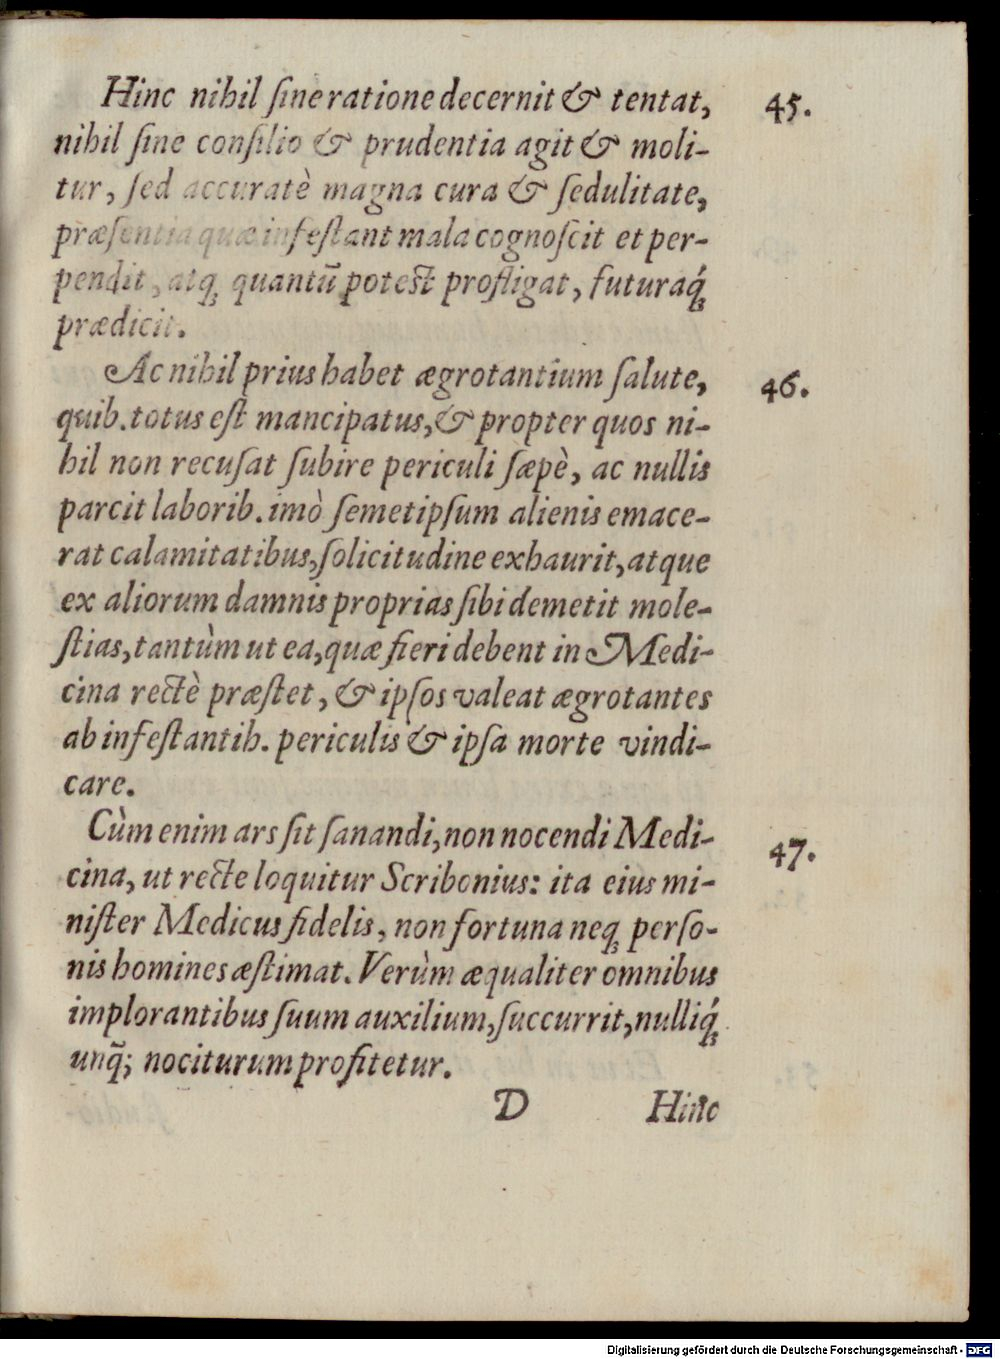 Hinc nihil ſine ratione decernit & tentat, 45.
nihil ſine conſilio & prudentia agit & moli-
tur, ſed accuratè magna cura & ſedulitate,
præſentia quæ infeſtant mala cognoſcit et per-
pendit, atq; quantũ poteſt profligat, futuraq́;
prædicit.
Ac nihil prius habet ægrotantium ſalute, 46.
quib. totus eſt mancipatus, & propter quos ni-
hil non recuſat ſubire periculi ſæpè, ac nullis
parcit laborib. imò ſemetipſum alienis emace-
rat calamitatibus, ſolicitudine exhaurit, atque
ex aliorum damnis proprias ſibi demetit mole-
ſtias, tantùm ut ea, quæ fieri debent in Medi-
cina rectè præſtet, & ipſos valeat ægrotantes
ab infeſtantib. periculis & ipſa morte vindi-
care.
Cùm enim ars ſit ſanandi, non nocendi Medi- 47.
cina, ut recte loquitur Scribonius: ita eius mi-
niſter Medicus fidelis, non fortuna neq; perſo-
nis homines æſtimat. Verùm æqualiter omnibus
implorantibus ſuum auxilium, ſuccurrit, nulliq́;
unq̃; nociturum profitetur.
D Hinc
Digitalisierung gefördert durch die Deutsche Forschungsgemeinschaft - DFG